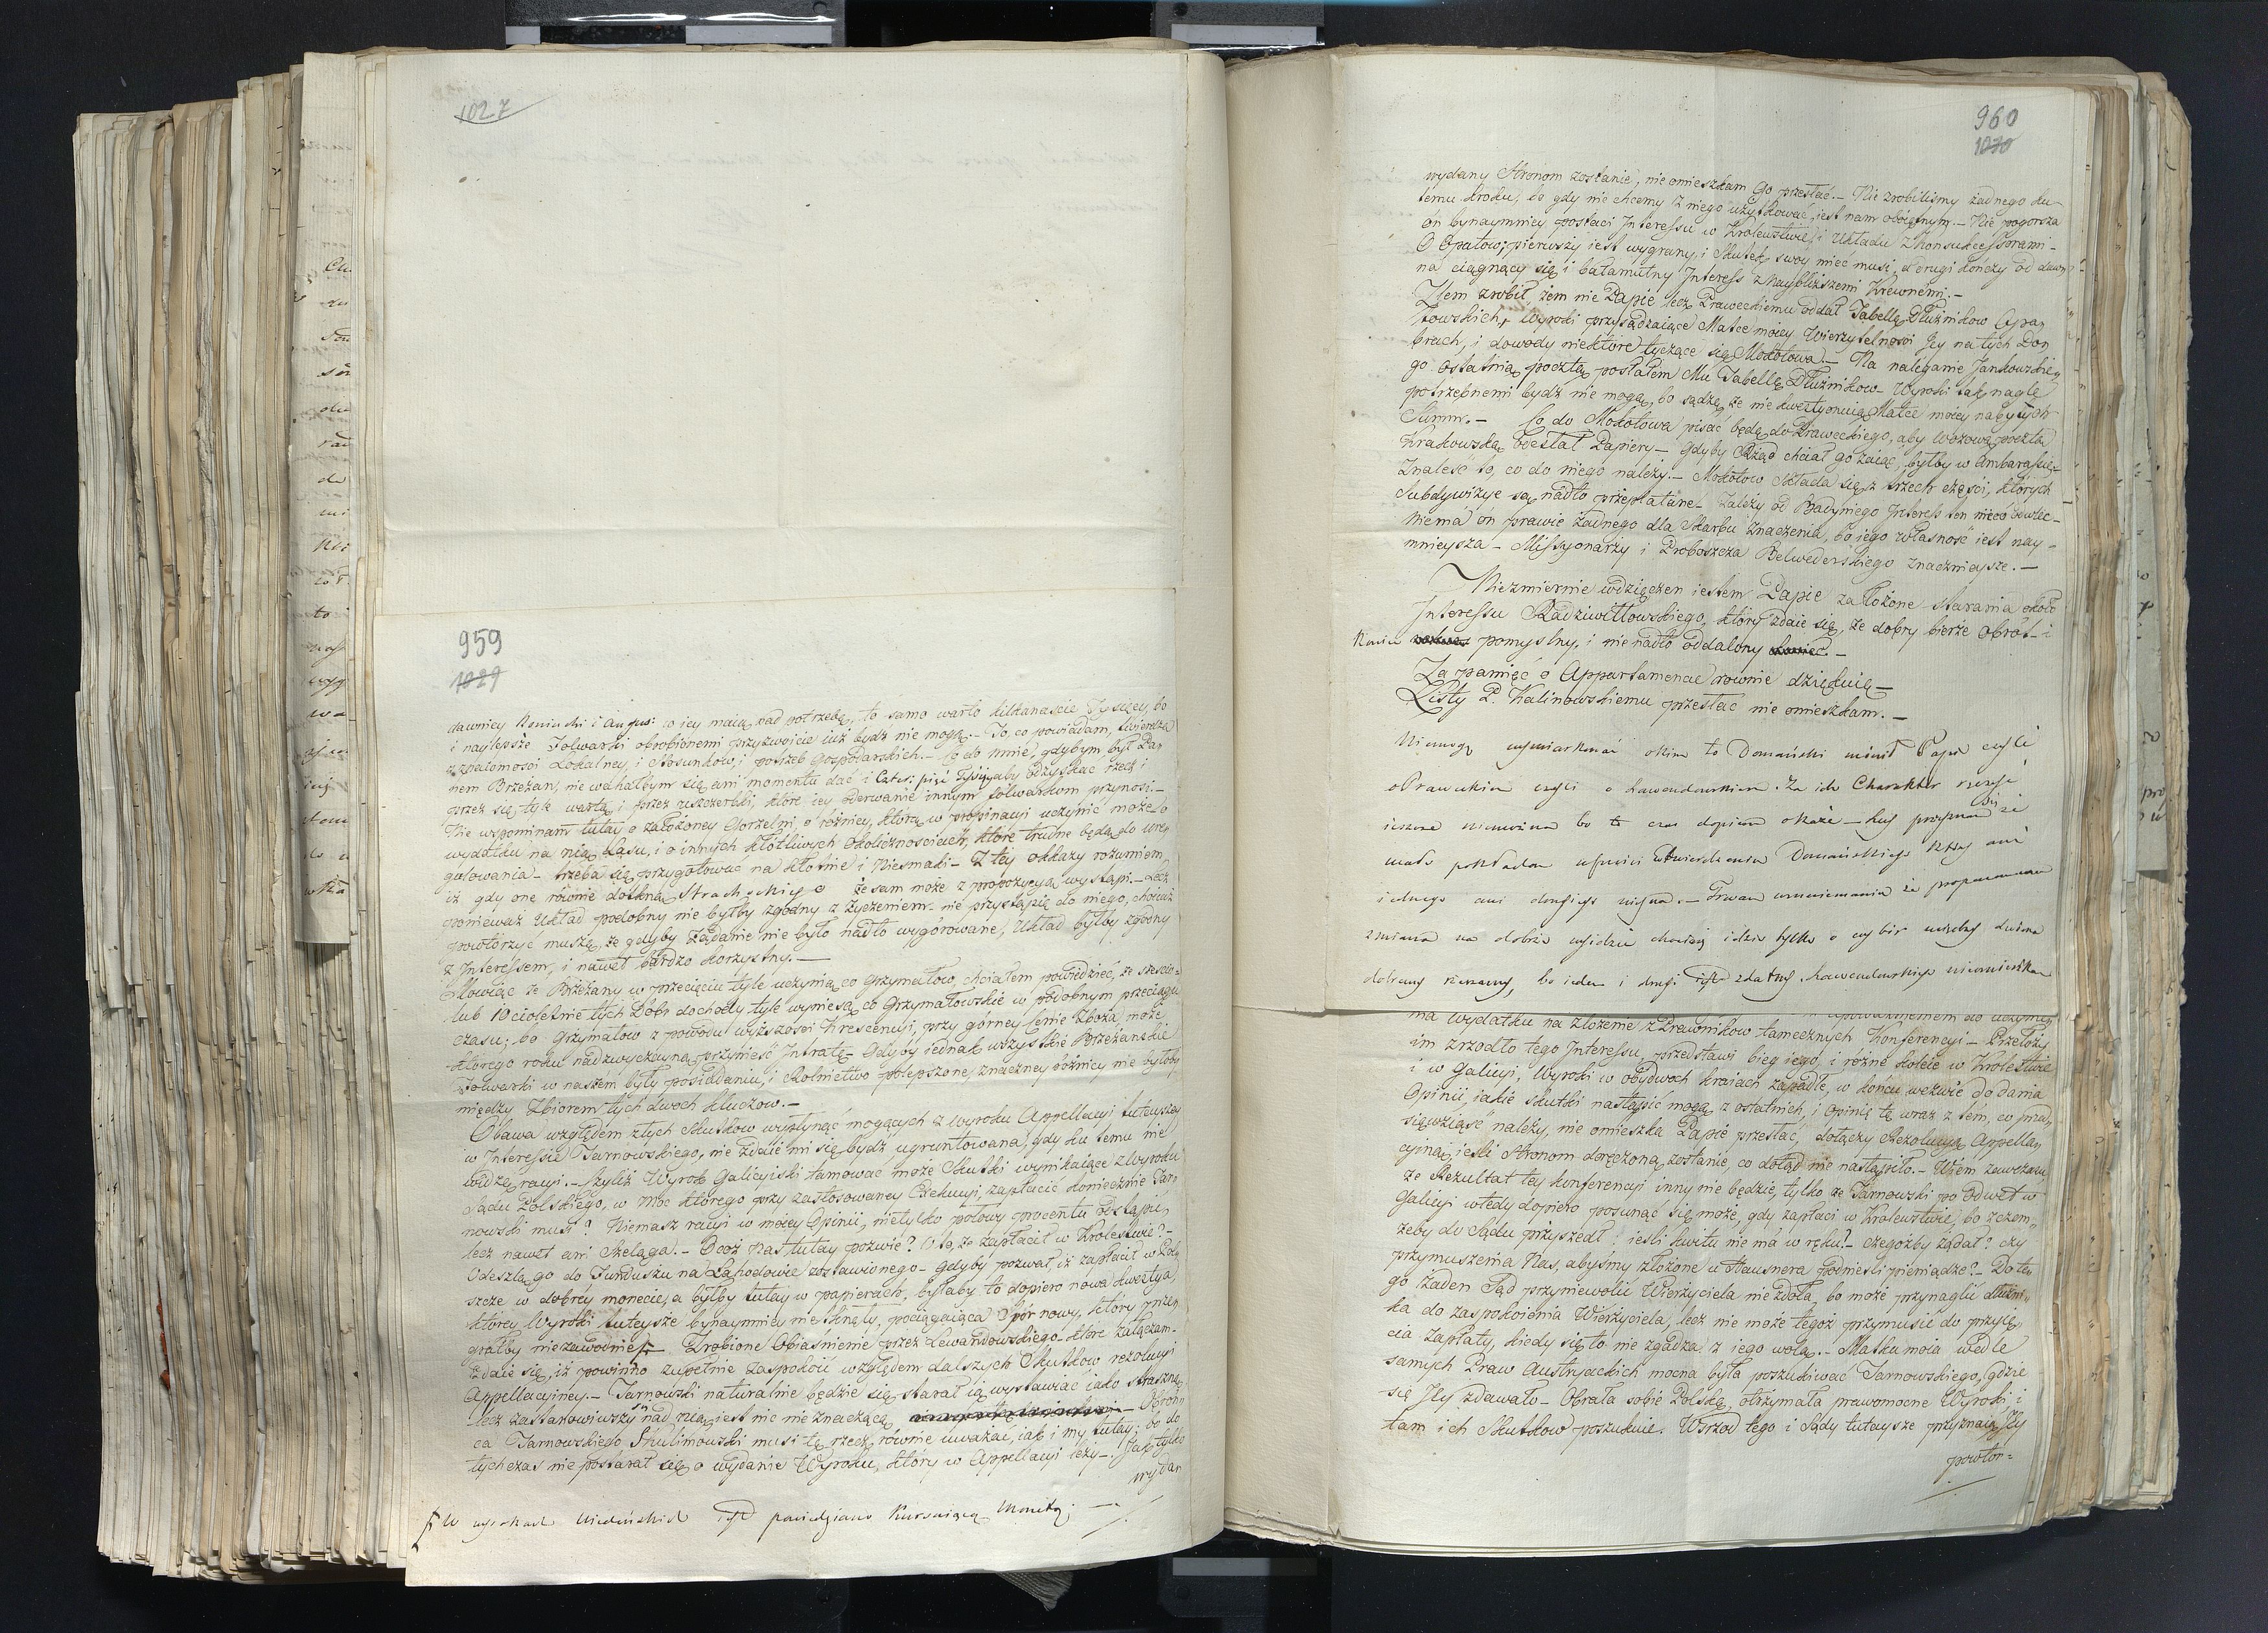 1027
959
1029
dawniey Koniuski i August: co iey maią nad potrzebę, to samo warto kilkanaście Tysięcy, bo
i naylepsze Folwarki obrobionemi przyzwoicie iuż bydź nie mogą. – To, co powiadam, twierdzę
z znaiomości Lokalney, i Stosunków, i potrzeb Gospodarskich. – Co do mnie, gdybym był Pa-
nem Brzeżan, nie wahałbym się ani momentu dać i Czter: pięć Tysięcy aby odzyskać rzecz i
przez się tyle wartą i przez uszczerbki, które iey oderwanie innym folwarkom przynosi. –
Nie wspominam tutay o założoney Gorzelni, o różnicy, którą w propinacyi uczynić może, o
wydatku na nią Lasu, i o innych kłótliwych okolicznościach, które trudne będą do ure-
gulowania – trzeba się przygotować na kłótnie i Niesmaki – Z tey okkazyi rozumiem,
iż gdy one równie dotkną Strachockiego że sam może z propozycyą wystąpi. – Lecz
ponieważ Układ podobny nie byłby zgodny z Życzeniem – nie przystąpię do niego, chociaż
powtórzyć muszę, że gdyby Żądanie nie było nadto wygórowane, Układ byłby zgodny
z Interessem, i nawet bardzo korzystny. –
Mówiąc że Brzeżany w przecięciu tyle uczynią co Grzymałow, chciałem powiedzieć, że sześcio-
lub 10cioletnie tych Dóbr dochody tyle wyniesą, co Grzymałowskie w podobnym przeciągu
czasu; bo Grzymałow z powodu wyższości Krescencyi, przy górney Cenie Zboża, może
którego roku nadzwyczayną przynieść Intratę – Gdyby iednak wszystkie Brzeżańskie
Folwarki w naszém były posiadaniu, i Rolnictwo polepszone, znaczney różnicy nie byłoby
między Zbiorem tych dwóch kluczow. –
Obawa względem złych Skutków wypłynąć mogących z Wyroku Appellacyi tuteyszey
w Interessie Tarnowskiego, nie zdaie mi się bydź ugruntowana, gdy ku temu nie
widzę racyi. – Czyliż Wyrok Galicyiski tamować może Skutki wynikaiące z Wyroku
Sądu Polskiego, w Moc którego przy zastosowaney Exekucyi, zapłacić koniecznie Tar-
nowski musi? Niemasz racyi w moiey Opinii, nietylko połowy procentu odstąpić,
lecz nawet ani Szeląga. – O coż Nas tutay pozwie? O to, że zapłacił w Królestwie? –
Odeszlą go do Funduszu na Łahodowie zostawionego – Gdyby pozwał, iż zapłacił w Pol-
szcze w dobrey monecie, a byłby tutay w papierach, byłaby to dopiero nowa kwestya,
którey Wyroki tuteysze bynaymniey nie tknęły, pociągaiąca Spór nowy, który prze-
grałby niezawodnie ⨍ – Zrobione Obiaśnienie przez Lewandowskiego które załączam –
zdaie się, iż powinno zupełnie zaspokoić względem dalszych Skutków rezolucyi
Appellacyiney. – Tarnowski naturalnie będzie się starał ią wystawiać iako straszną
lecz zastanowiwszy się nad nią, iest nic nie znaczącą – Obroń-
ca Tarnowskiego Skulimowski musi tę rzecz równie uważać, iak i my tutay; bo do
tychczas nie postarał się o wydanie Wyroku, który w Appellacyi leży –. Jak tylko
wydan
⨍ W wyrokach Wiedeńskich iest powiedziano kursuiącą Monetą; –
960
1030
wydany Stronom zostanie, nie omieszkam Go przesłać. – Nie zrobiliśmy żadnego ku
temu kroku, bo gdy nie chcemy z niego użytkować, iest nam obiętnym. – Nie pogorsza
on bynaymniey postaci Interessu w Królewstwie i Układu z Konsukcessorami –
O Opatow; pierwszy iest wygrany, i Skutek swoy mieć musi, a drugi kończy od daw-
na ciągnący się i bałamutny Interess z Naybliższemi Krewnemi. –
Złem zrobił, żem nie Papie lecz Praweckiemu oddał Tabellę Dłużnikow Opa-
towskich, Wyroki przysądzaiące Matce moiey Wierzytelności Jey na tych Do-
brach, i dowody niektóre tyczące się Mokotowa. – Na naleganie Jankowskie-
go ostatnią pocztą posłałem Mu Tabellę Dłużnikow – Wyroki tak nagle
potrzebnemi bydź nie mogą, bo sądzę, że nie kwestyonuią Matce moiey nabytych
Summ. – Co do Mokotowa pisać będę do Praweckiego, aby wozową pocztą
Krakowską odesłał Papiery – Gdyby Rząd chciał go zaiąć, byłby w Ambarassie
Znaleść to, co do niego należy. – Mokotow składa się z trzech części, których
Subdywizye są nadto przeplatane – Zależy od Badyniego Interess ten nieco odwlec –
Niema on prawie żadnego dla Skarbu znaczenia, bo iego własność iest nay-
mnieysza – Missyonarzy i Proboszcza Belwederskiego znacznieysze. –
Niezmiernie wdzięczen iestem Papie za łożone starania około
Interessu Radziwiłłowskiego, który zdaie się, że dobry bierze obrót – i
Koniec pomyslny, i nie nadto oddalony –
Za pamięć o Appartamencie równie dziękuię –
Listy P. Kalinowskiemu przesłać nie omieszkam. –
Niemogę wymiarkować okim to Domański mówił Papie czyli
o Praweckim czyli o Lewendowskim. Za ich Charakter ręczyć
ieszcze niemożna bo to czas dopiero okaże – Lecz przyznam się że
mało pokładam ufności w twierdzeniu Domańskiego który ani
iednego ani drugiego niezna. – Trwam w mniemaniu że proponowana
zmiana na dobrze wyidzie chociaż idzie tylko o wybór między dwóma
dobremi rzeczami, bo ieden i drugi iest zdatny. Lewendowskiego nieomieszkam
ma wydatku na złożenie z Prawnikow tamecznych Konferencyi – Przełoży
im zrzodło tego Interessu, przedstawi bieg iego, i różne koleie w Krolestwie
i w Galicyi, Wyroki w obydwoch kraiach zapadłe, w końcu wezwie do dania
Opinii, iakie skutki nastąpić mogą z ostatnich, i Opinię tę wraz z tém, co przed-
sięwziąść należy, nie omieszka Papie przesłać, dołączy Rezolucyą Appella-
cyiną, ieśli Stronom doręczoną zostanie, co dotąd nie nastąpiło. – Wiem zawczasu,
że Rezultat tey konferencyi inny nie będzie, tylko że Tarnowski po odwet w
Galicyi wtedy dopiero posunąć się może, gdy zapłaci w Krolewstwie, bo z czem-
żeby do Sądu przyszedł? ieśli kwitu nie ma w ręku? – Czegożby żądał? czy
przymuszenia Nas, abyśmy złożone u Hausnera podnieśli pieniądze? – Do te-
go żaden Sąd przyniewolić Wierzyciela nie zdoła, bo może przynaglić dłużni-
ka do zaspokoienia Wierzyciela, lecz nie może tegoż przymusić do przyię-
cia zapłaty, kiedy się to nie zgadza z iego wolą. – Matka moia wedle
samych Praw Austryackich mocna była poszukiwać Tarnowskiego, gdzie
się Jey zdawało – Obrała sobie Polskę, otrzymała prawomocne Wyroki, i
tam ich Skutków poszukuie. Wsrzod tego i Sądy tuteysze przyznaią Jey
powtór=